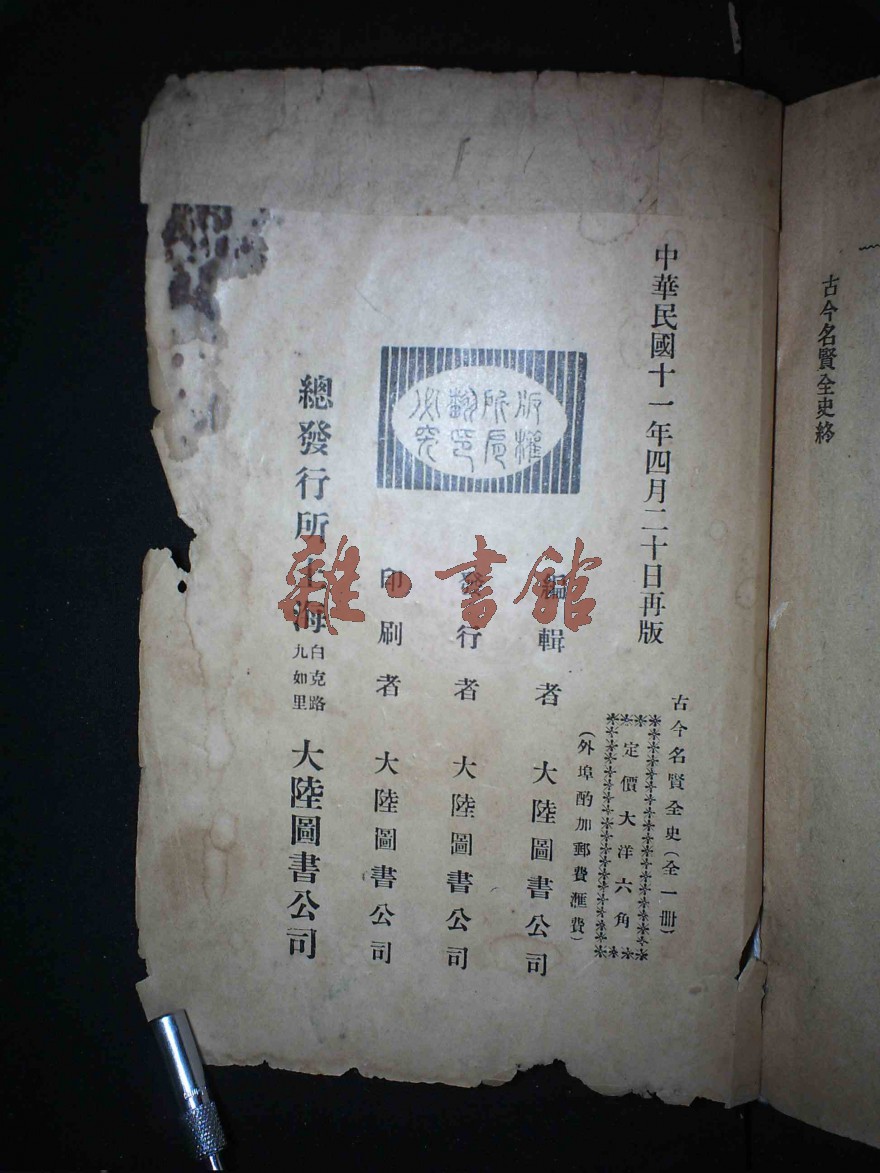 古今名賢全史終
中華民國十一年四月二十日再版
古今名賢全史(全一冊)
定價大洋六角
(外埠酌加郵費滙費)
編輯者 大陸圖書公司
發行者 大陸圖書公司
印刷者 大陸圖書公司
版權
所有
翻印
必究
總發行所上海白克路九如里 大陸圖書公司
雜·書館